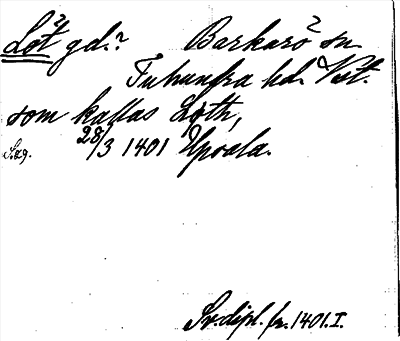 Löt gd.? Barkarö sn
Tuhundra hd. Väst.
som kallas Löth,
S. 29. 28/3 1401 Upsala.
Sv. dipl. fr. 1401. I.